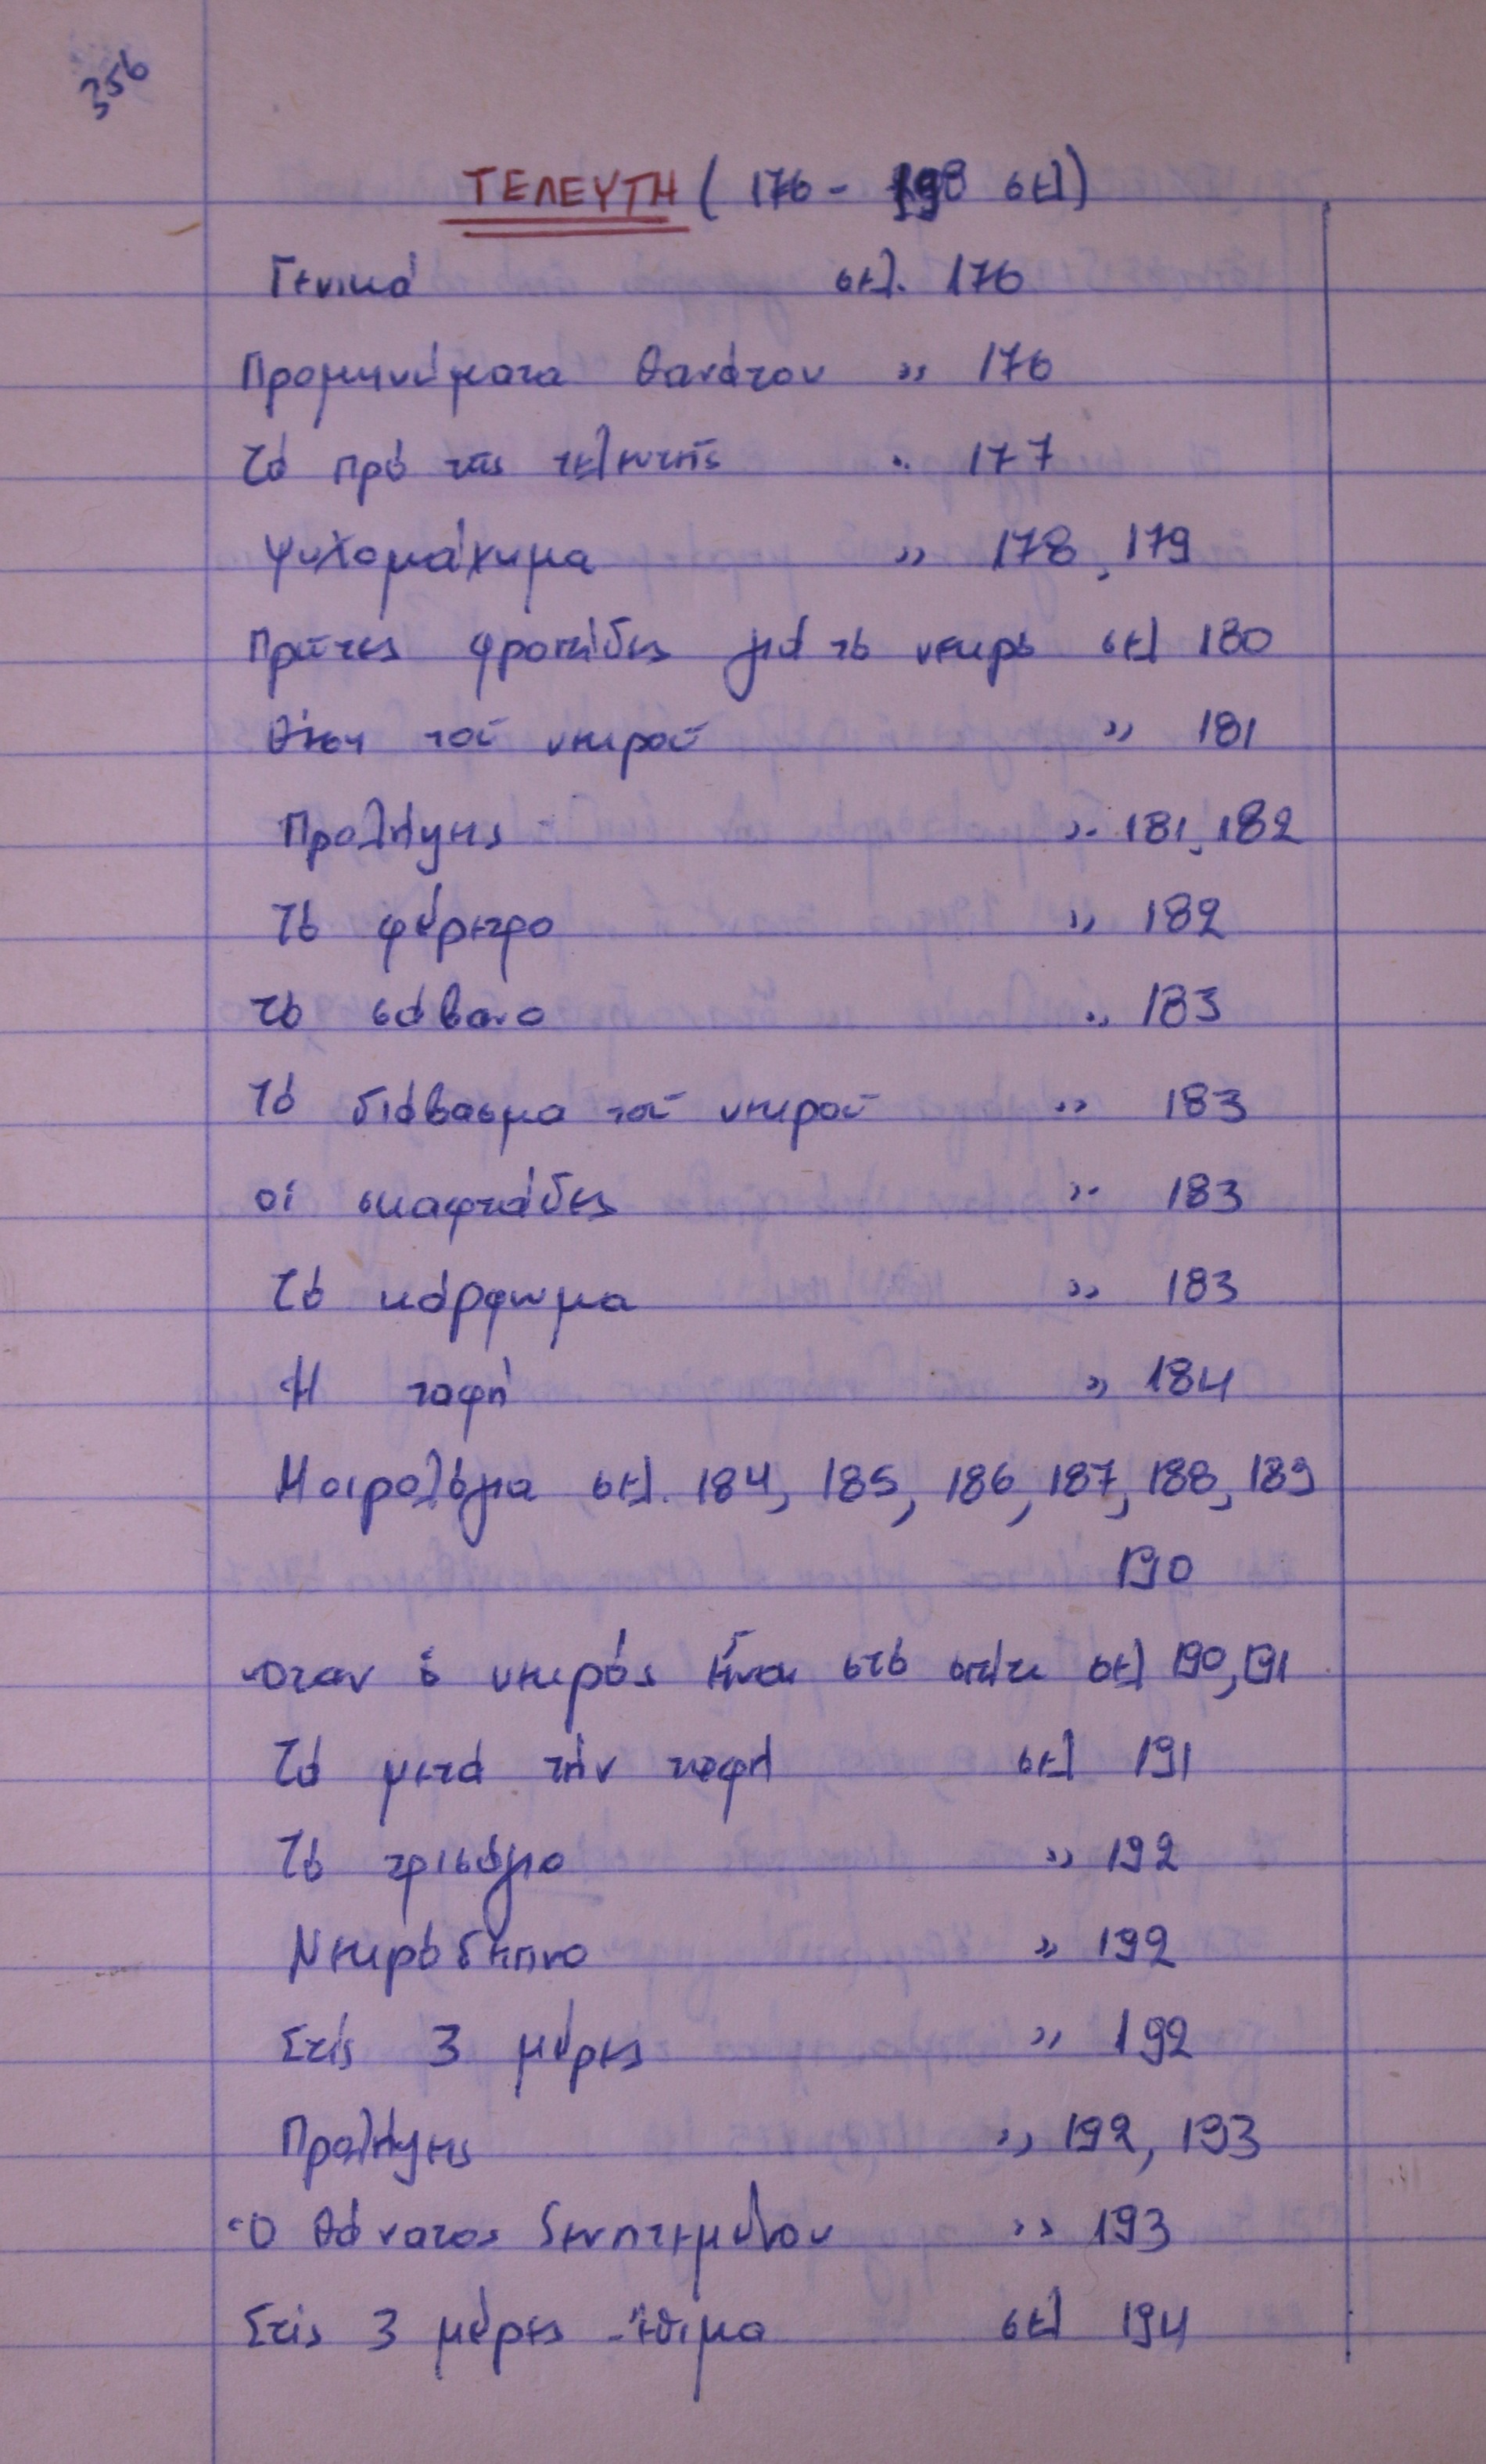 356
ΤΕΛΕΥΤΗ (176 - 198 σελ)
Γενικά σελ. 176
Προμηνύματα θανάτου " 176
Τά πρό τῆς τελευτῆς " 177
Ψυχομάχημα " 178, 179
Πρῶτες φροντίδες γιά τό νεκρό σελ 180
Θέση τοῦ νεκροῦ " 181
Προλήψεις " 181, 182
Τό φέρετρο " 182
Τό σάβανο " 183
Τό διάβασμα τοῦ νεκροῦ " 183
οἱ σκαφτιάδες " 183
Τό κάρφωμα " 183
Ἡ ταφή " 184
Μοιρολόγια σελ. 184, 185, 186, 187, 188, 189
190
Ὅταν ὁ νεκρός εἶναι στό σπίτι σελ 190, 191
Τά μετά τήν ταφή σελ 191
Τό τρισάγιο " 192
Νεκρόδειπνο " 192
Στίς 3 μέρες " 192
Προλήψεις " 192, 193
Ὁ θάνατος " 193
Στίς 3 μέρες - ἔθιμα σελ 194